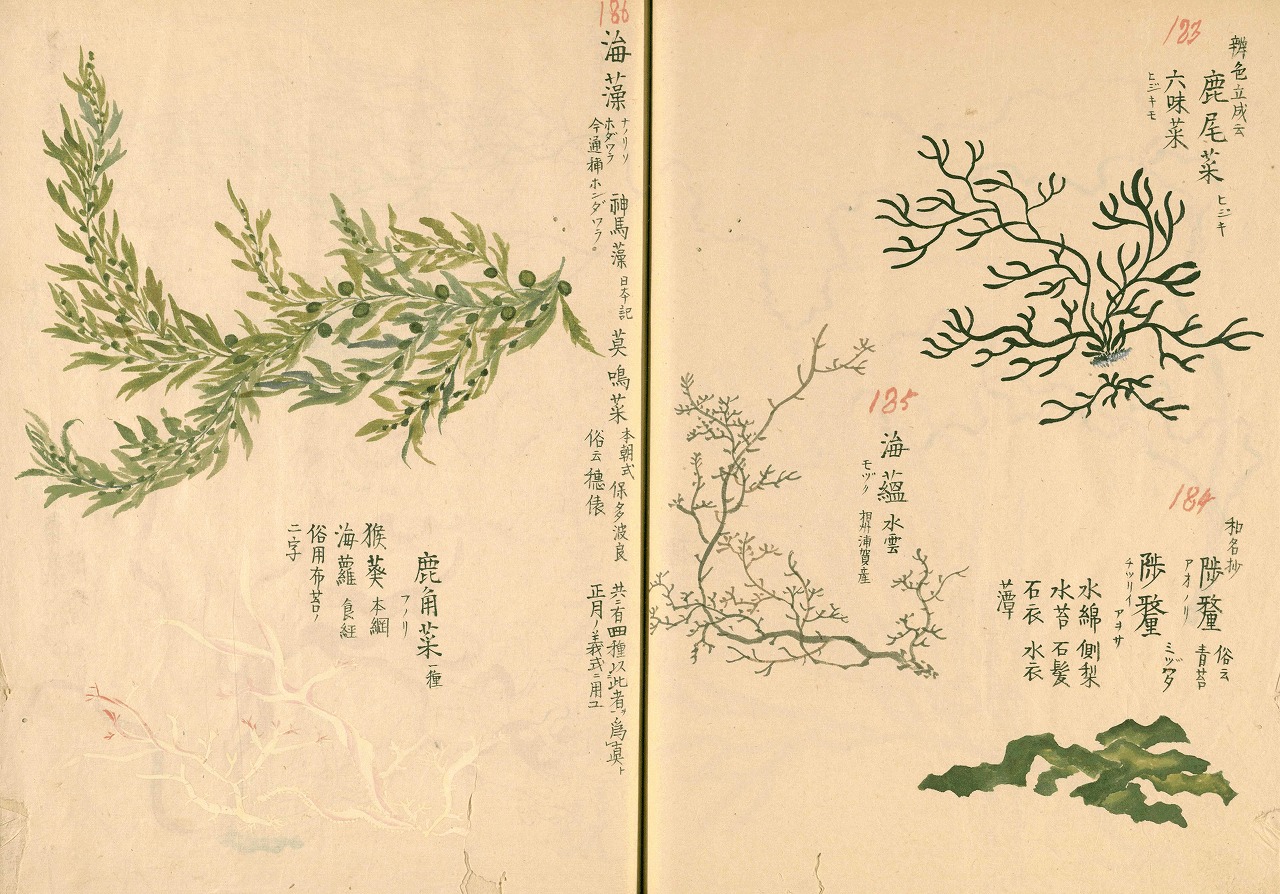 183
辨色立成云
鹿尾菜 ヒジキ
六味菜
ヒジキモ
184
和名抄
陟釐 俗云 青苔
アオノリ
陟釐 ミヅワタ
チツリイ アヲサ
水綿 側梨
水苔 石髪
石衣 水衣
藫
185
海蘊 水雲
モヅク 相州浦賀産
186
海藻 神馬藻 日本記 莫鳴菜 本朝式 保多波良 共ニ有四種以此者ヲ為真ト
ナノリソ
ホダワラ
今通称ホンダワラ。
俗云穗俵 正月ノ義式ニ用ユ
鹿角菜 一種
フノリ
猴葵 本綱
海蘿 食経
俗用布苔ノ
二字